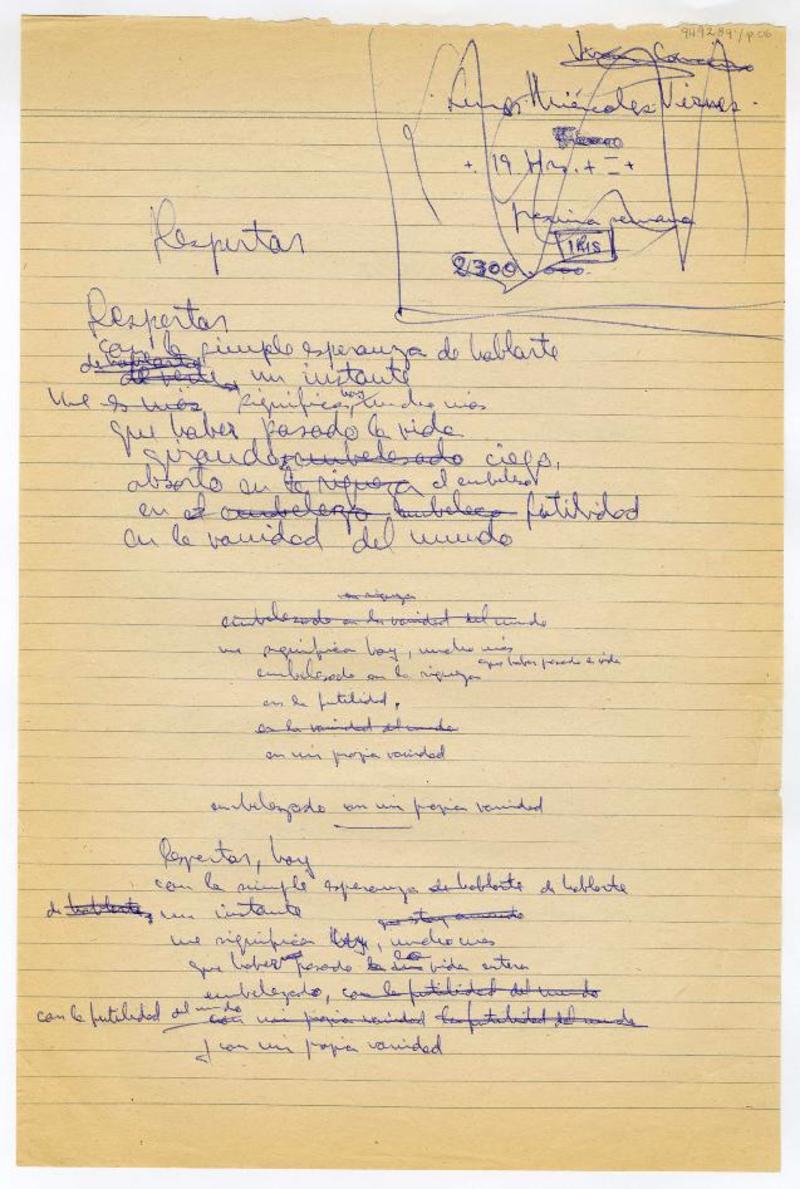 949289 / p.06
Lunes Miércoles Viernes.
+ 19 Hrs. + +
proxima semana
IRIS
2300.000.
Despertar
Despertar
con la simple esperanza de hablarte
de hablarte
de verte, un instante
me es más significa, hoy, mucho más
que haber pasado la vida
girando, embelesado ciego,
absorto en la riqueza el embeleso
en el embelezo embelezo futilidad
en la vanidad del mundo
en riqueza
embelezado en la vanidad del mundo
me significa hoy, mucho más
que haber pasado la vida
embelezado en la riqueza
en la futilidad,
en la vanidad del mundo
en mi propia vanidad
embelezado con mi propia vanidad
Despertar, hoy
con la simple esperanza de hablarte de hablarte
de hablarte, un instante
que estoy amando
me significa hoy, mucho más
que haber pasado la vida entera
embelezado, con la futilidad del mundo
con la futilidad del mundo con mi propia vanidad la futilidad del mundo
y con mi propia vanidad